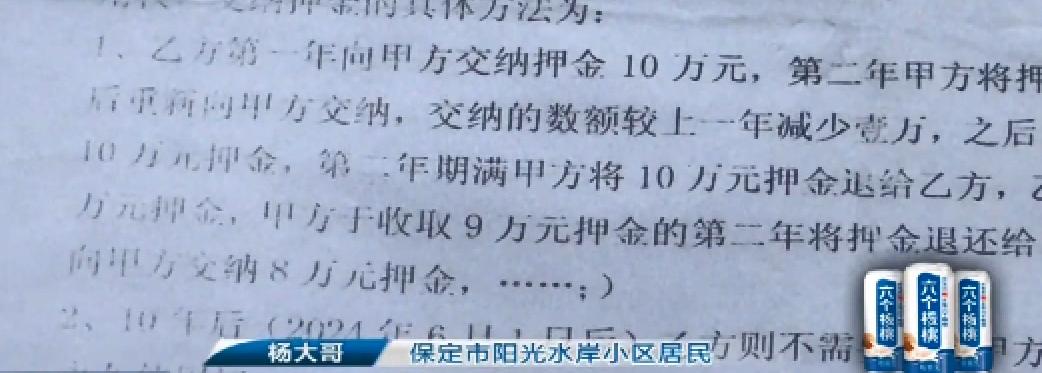 交纳押金的具体方法为：
1、乙方第一年向甲方交纳押金10万元，第二年甲方将押
后重新向甲方交纳，交纳的数额较上一年减少壹万，之后
10万元押金，第二年期满甲方将10万元押金退给乙方，乙
万元押金，甲方于收取9万元押金的第二年将押金退还给
向甲方交纳8万元押金，……；）
2、10年后（2024年6月1日后）乙方则不需 甲方
杨大哥 保定市阳光水岸小区居民
六个核桃 六个核桃 六个核桃